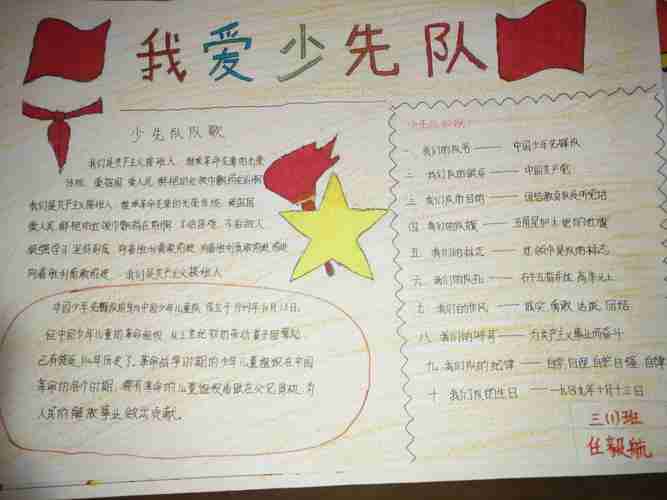 我爱少先队
少先队队歌
我们是共产主义接班人 继承革命先辈的光荣
传统 爱祖国 爱人民 鲜艳的红领巾飘扬在前胸
我们是共产主义接班人 继承革命先辈的光荣传统 爱祖国
爱人民 鲜艳的红领巾飘扬在前胸 不怕困难 不怕敌人
顽强学习 坚决斗争 向着胜利勇敢前进 向着胜利勇敢前进
向着胜利勇敢前进 我们是共产主义接班人
中国少年先锋队 中国少年儿童队 成立于1949年10月13日
中国少年儿童的革命组织
革命战争时期的少年儿童组织在中国
革命的各个时期
人民的解放事业做出贡献。
一 我们的队名 —— 中国少年先锋队
二 我们队的 —— 中国共产党
三 我们队的目的 —— 团结教育
四 我们的队旗 —— 五角星加火炬的红旗
五 我们的标志 —— 红领巾是队的标志
六 我们的队礼 —— 右手五指并拢 高举头上
七 我们的作风 —— 诚实 勇敢 活泼 团结
八 我们的呼号 —— 为共产主义事业而奋斗
九 我们队的纪律 —— 自学 自理 自护 自强 自律
十 我们队的生日 —— 一九四九年十月十三日
三(1)班
任毅航